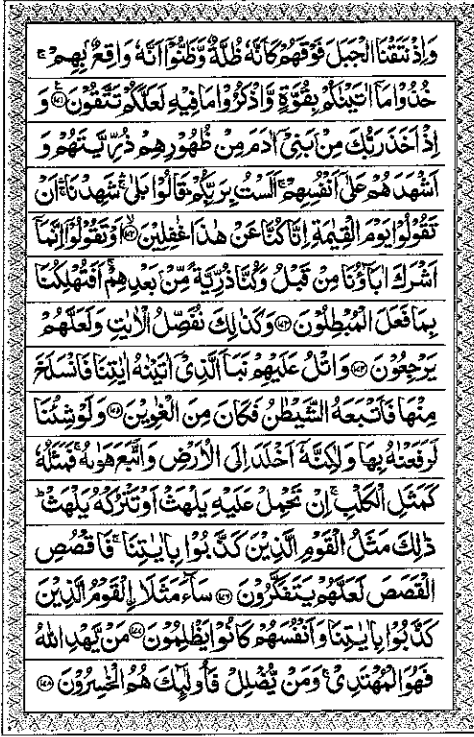 وَاِذْ نَتَقْنَا الْجَبَلَ فَوْقَهُمْ كَاَنَّهٗ ظُلَّةٌ وَّظَنُّوْٓا اَنَّهٗ وَاقِعٌۢ بِهِمْ ۚ
خُذُوْا مَآ اٰتَيْنٰكُمْ بِقُوَّةٍ وَّاذْكُرُوْا مَا فِيْهِ لَعَلَّكُمْ تَتَّقُوْنَ ﴿۱۷۱﴾ وَ
اِذْ اَخَذَ رَبُّكَ مِنْۢ بَنِيْٓ اٰدَمَ مِنْ ظُهُوْرِهِمْ ذُرِّيَّتَهُمْ وَ
اَشْهَدَهُمْ عَلٰٓى اَنْفُسِهِمْ ۚ اَلَسْتُ بِرَبِّكُمْ ؕ قَالُوْا بَلٰى ۛۚ شَهِدْنَا ۛۚ اَنْ
تَقُوْلُوْا يَوْمَ الْقِيٰمَةِ اِنَّا كُنَّا عَنْ هٰذَا غٰفِلِيْنَ ۙ﴿۱۷۲﴾ اَوْ تَقُوْلُوْٓا اِنَّمَآ
اَشْرَكَ اٰبَآؤُنَا مِنْ قَبْلُ وَكُنَّا ذُرِّيَّةً مِّنْۢ بَعْدِهِمْ ۚ اَفَتُهْلِكُنَا
بِمَا فَعَلَ الْمُبْطِلُوْنَ ﴿۱۷۳﴾ وَكَذٰلِكَ نُفَصِّلُ الْاٰيٰتِ وَلَعَلَّهُمْ
يَرْجِعُوْنَ ﴿۱۷۴﴾ وَاتْلُ عَلَيْهِمْ نَبَاَ الَّذِيْٓ اٰتَيْنٰهُ اٰيٰتِنَا فَانْسَلَخَ
مِنْهَا فَاَتْبَعَهُ الشَّيْطٰنُ فَكَانَ مِنَ الْغٰوِيْنَ ﴿۱۷۵﴾ وَلَوْ شِئْنَا
لَرَفَعْنٰهُ بِهَا وَلٰكِنَّهٗٓ اَخْلَدَ اِلَى الْاَرْضِ وَاتَّبَعَ هَوٰىهُ ۚ فَمَثَلُهٗ
كَمَثَلِ الْكَلْبِ ۚ اِنْ تَحْمِلْ عَلَيْهِ يَلْهَثْ اَوْ تَتْرُكْهُ يَلْهَثْ ؕ
ذٰلِكَ مَثَلُ الْقَوْمِ الَّذِيْنَ كَذَّبُوْا بِاٰيٰتِنَا ۚ فَاقْصُصِ
الْقَصَصَ لَعَلَّهُمْ يَتَفَكَّرُوْنَ ﴿۱۷۶﴾ سَآءَ مَثَلَا ِۨالْقَوْمُ الَّذِيْنَ
كَذَّبُوْا بِاٰيٰتِنَا وَاَنْفُسَهُمْ كَانُوْا يَظْلِمُوْنَ ﴿۱۷۷﴾ مَنْ يَّهْدِ اللّٰهُ
فَهُوَ الْمُهْتَدِيْ ۚ وَمَنْ يُّضْلِلْ فَاُولٰٓئِكَ هُمُ الْخٰسِرُوْنَ ﴿۱۷۸﴾